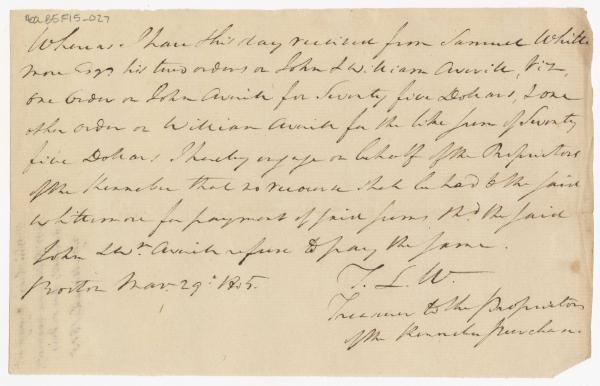 Coll.B5F15_027
Whereas I have this day received from Samuel Whitte
more Esqr. his two orders on John & William Averill, Viz,
one order on John Averill for Seventy five Dollars, & one
other order on William Averill for the like sum of Seventy
five Dollars I hereby engage on behalf of the Proprietors
of the Kennebec that no recourse shall be had to the said
Whittemore for payment of said sums shd. the said
John & Wm. Averill refuse to pay the same.
Boston Mar 29. 1805.
T. L. W.
Treasurer to the Proprietors
of the Kennebec purchase.